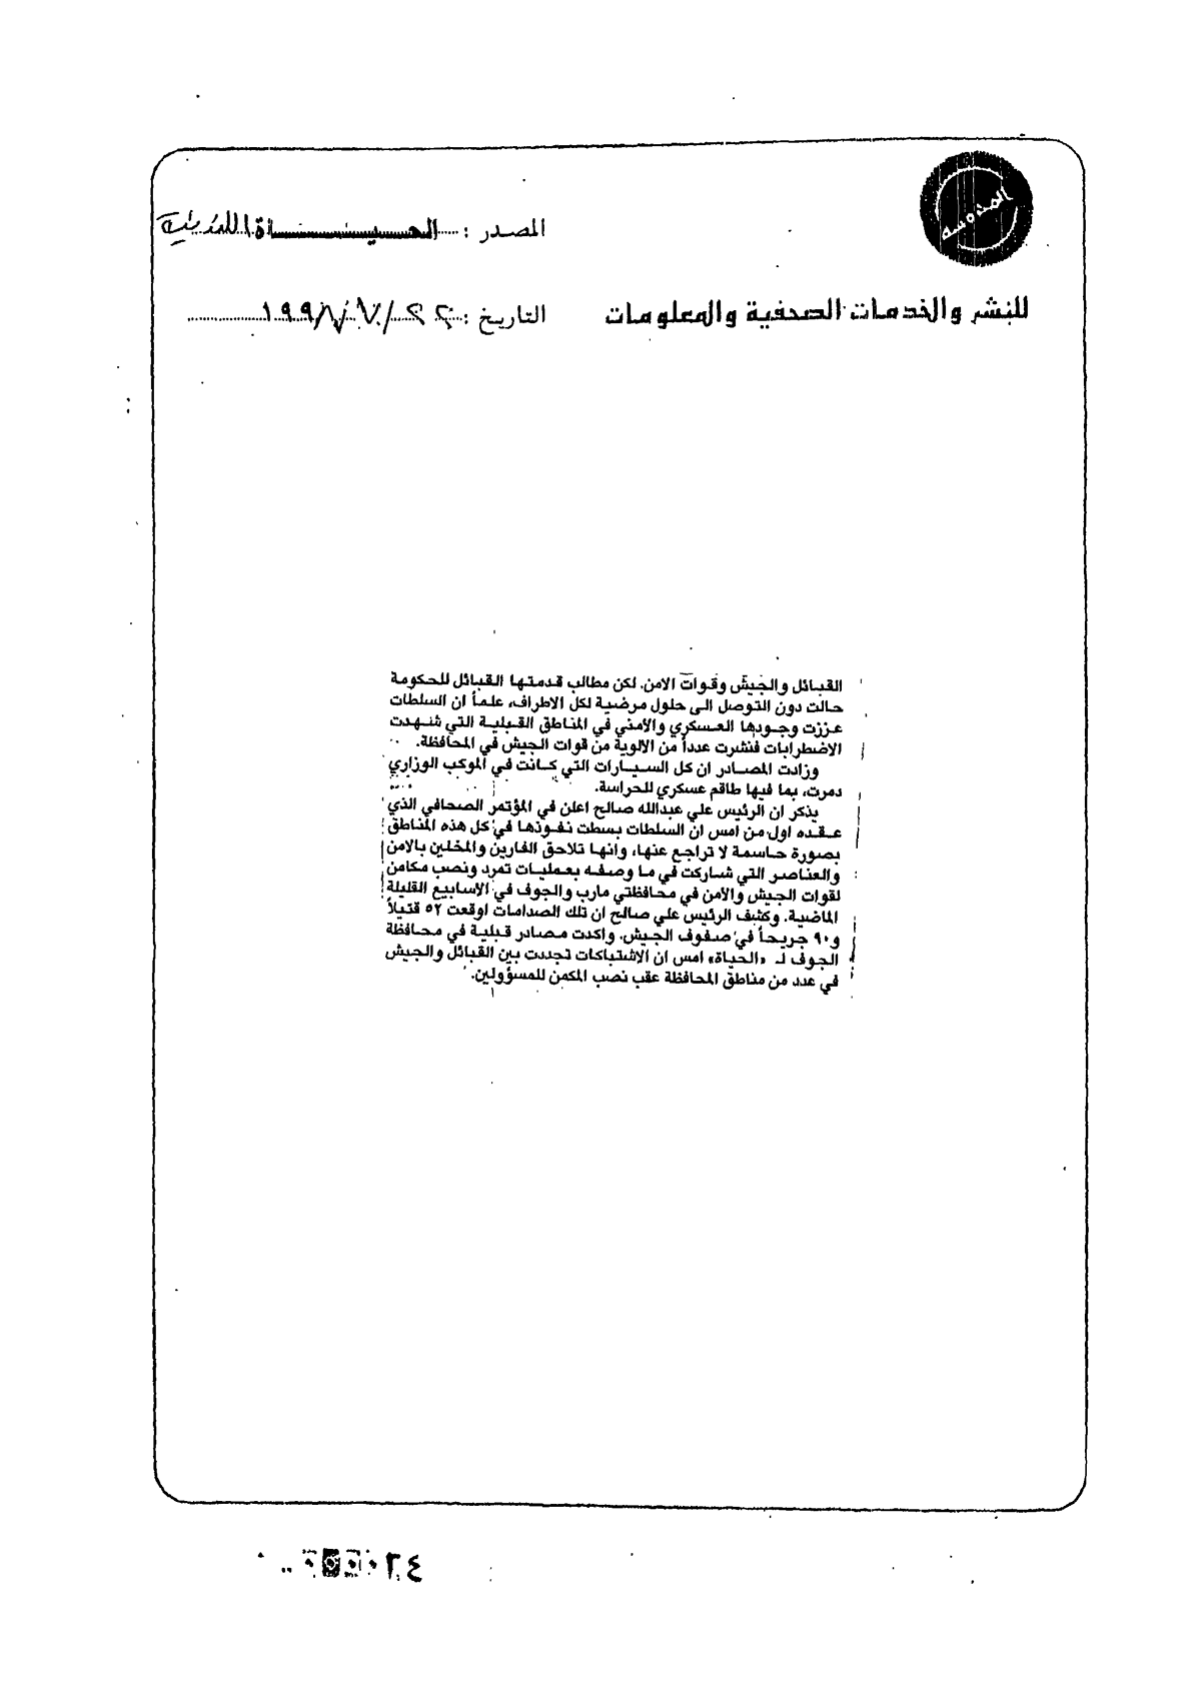 المصدر : الحيــاة اللندنية
للنشر والخدمات الصحفية والمعلومات
التاريخ : ٢٢ / ٧ / ١٩٩٨
القبائل والجيش وقوات الامن. لكن مطالب قدمتها القبائل للحكومة
حالت دون التوصل الى حلول مرضية لكل الاطراف، علماً ان السلطات
عززت وجودها العسكري والأمني في المناطق القبلية التي شهدت
الاضطرابات فنشرت عدداً من الالوية من قوات الجيش في المحافظة.
وزادت المصادر ان كل السيارات التي كانت في الموكب الوزاري
دمرت، بما فيها طاقم عسكري للحراسة.
يذكر ان الرئيس علي عبدالله صالح اعلن في المؤتمر الصحافي الذي
عقده اول من امس ان السلطات بسطت نفوذها في كل هذه المناطق
بصورة حاسمة لا تراجع عنها، وانها تلاحق الفارين والمخلين بالامن
والعناصر التي شاركت في ما وصفه بعمليات تمرد ونصب مكامن
لقوات الجيش والامن في محافظتي مارب والجوف في الاسابيع القليلة
الماضية. وكشف الرئيس علي صالح ان تلك الصدامات اوقعت ٥٢ قتيلاً
و٩٠ جريحاً في صفوف الجيش. واكدت مصادر قبلية في محافظة
الجوف لـ «الحياة» امس ان الاشتباكات تجددت بين القبائل والجيش
في عدد من مناطق المحافظة عقب نصب المكمن للمسؤولين.